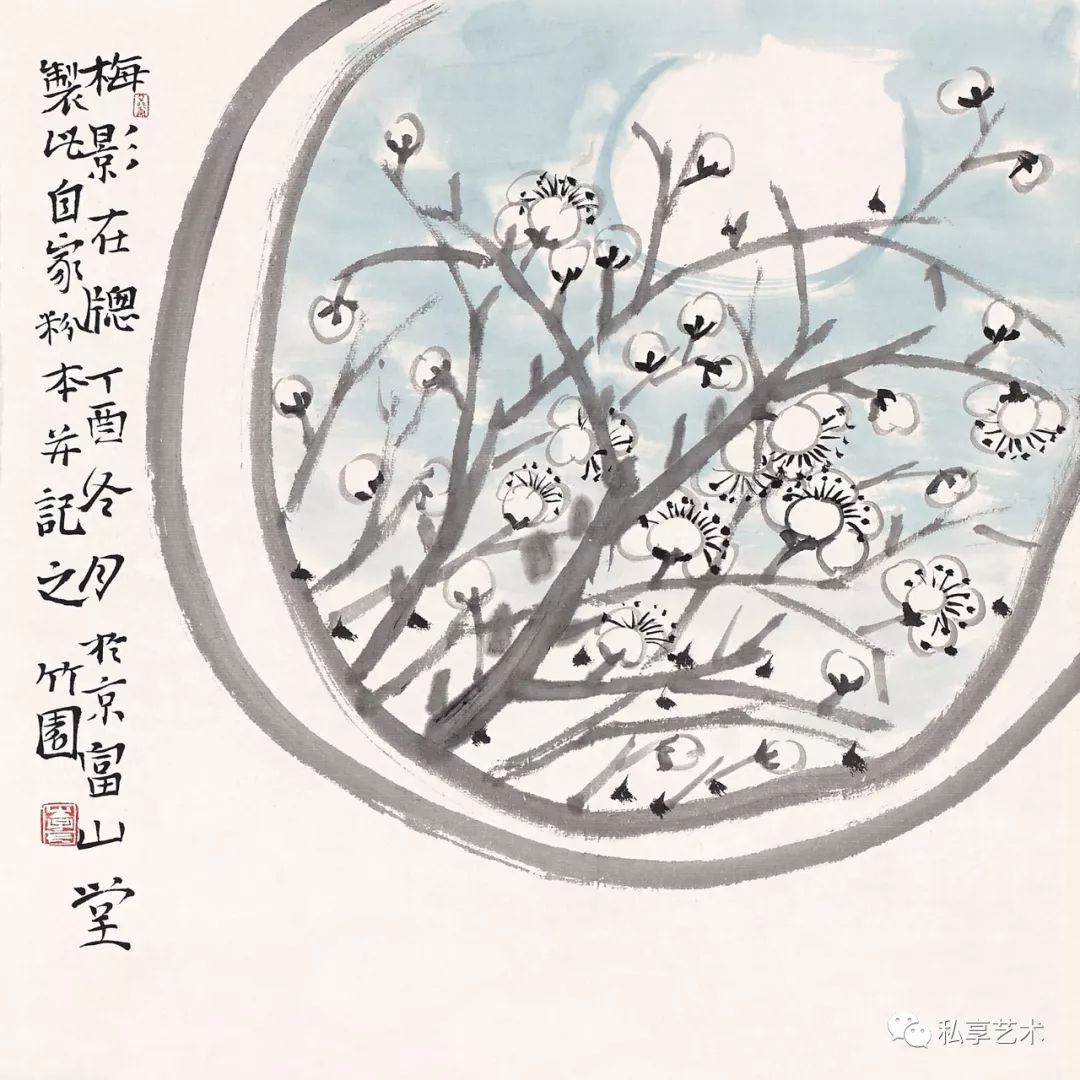 梅影在牕丁酉冬月於京富山堂
製此自家粉本并記之竹園
私享艺术